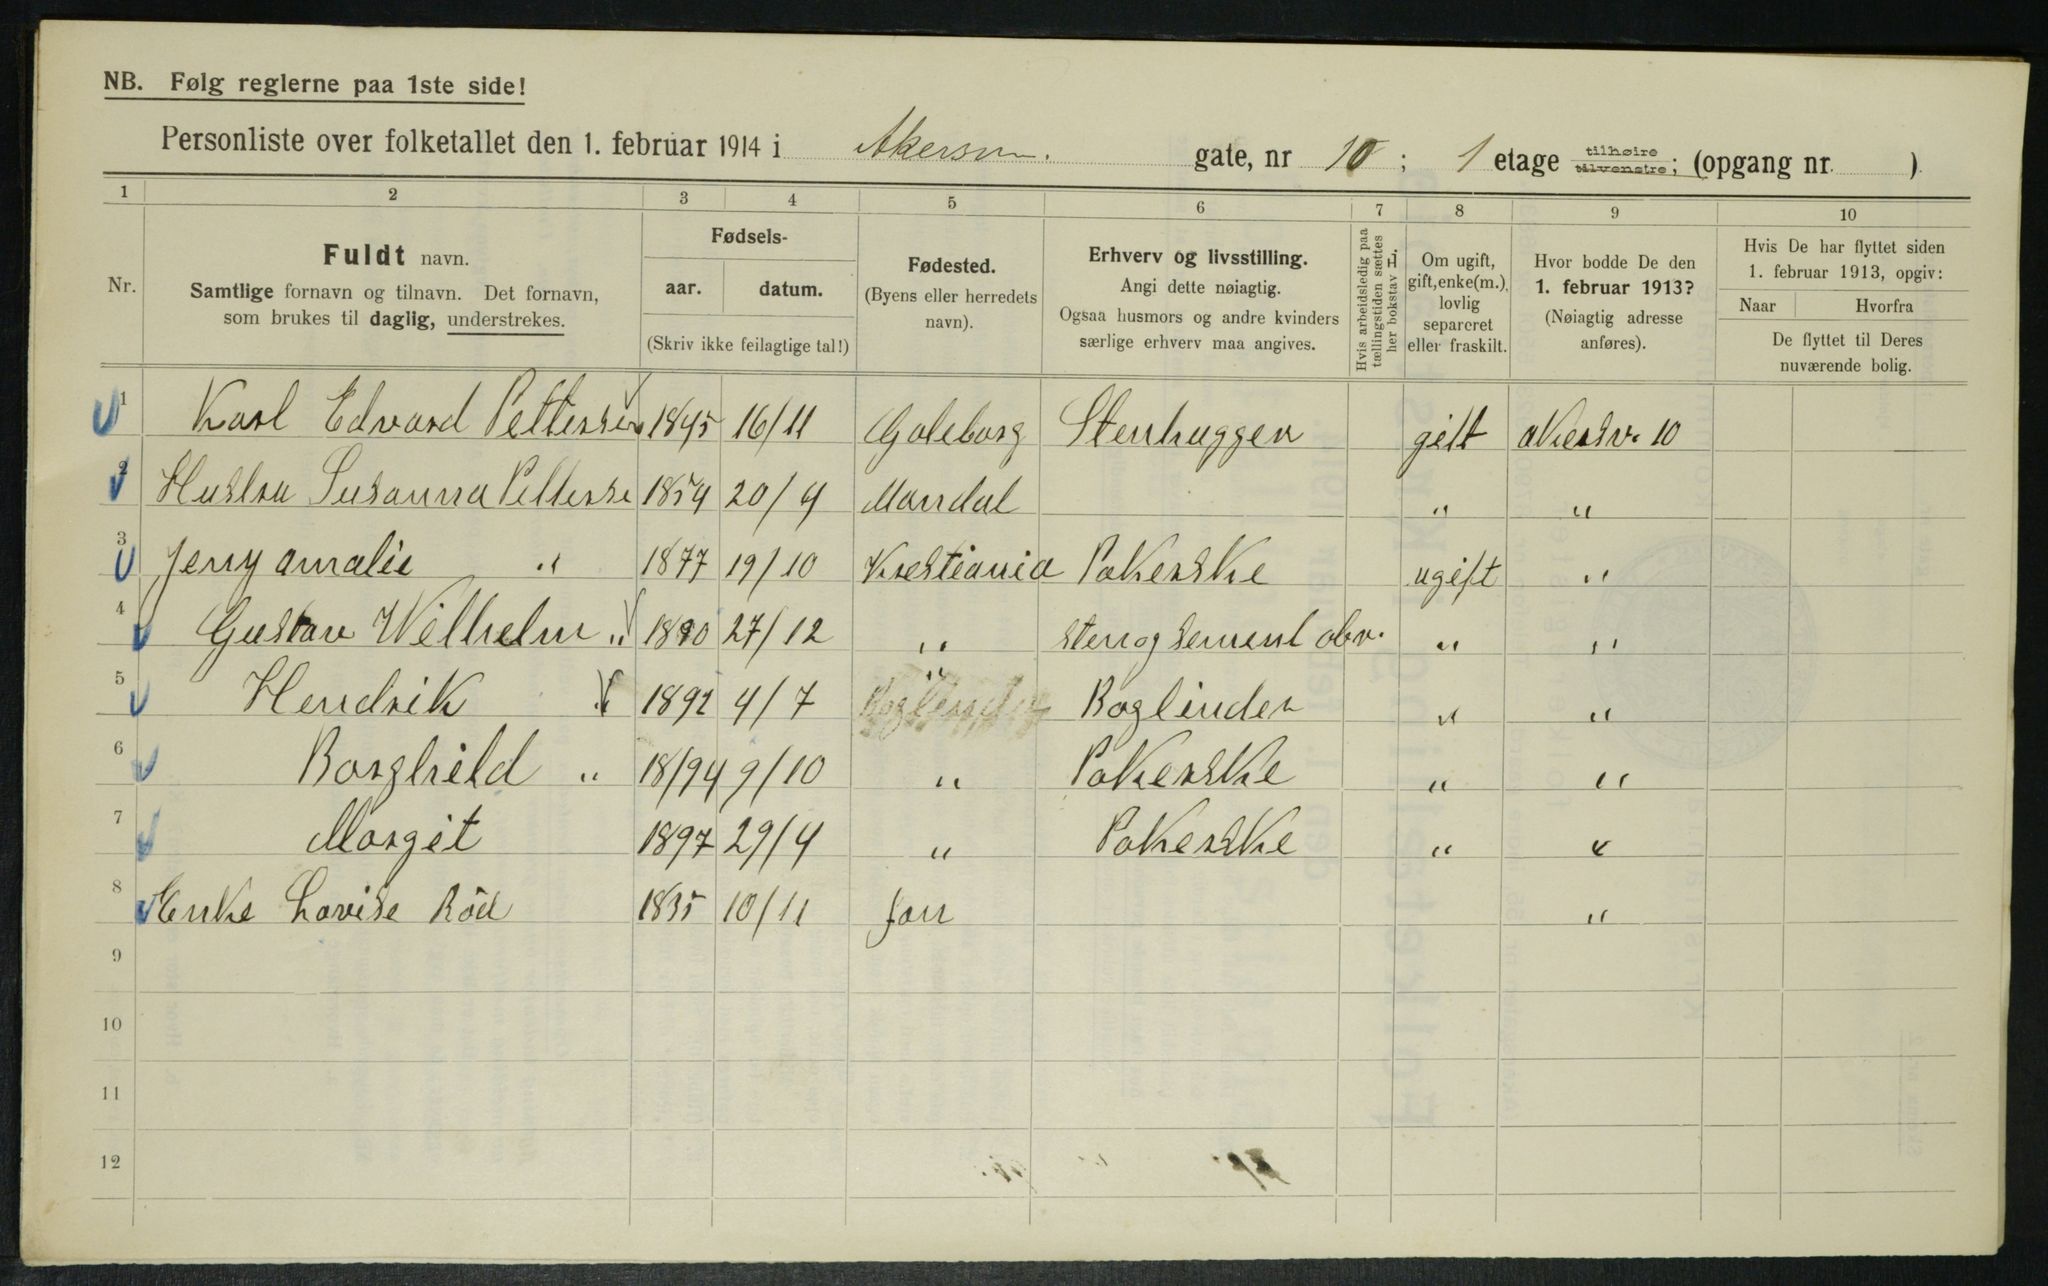 NB. Følg reglerne paa 1ste side!
Personliste over folketallet den 1. februar 1914 i Akersvn. gate, nr 10 ; 1 etage tilhøire tilvenstre; (opgang nr. )
1 2 3 4 5 6 7 8 9 10
Nr.
Fuldt navn.
Samtlige fornavn og tilnavn. Det fornavn,
som brukes til daglig, understrekes.
Fødsels-
aar. datum.
(Skriv ikke feilagtige tal!)
Fødested.
(Byens eller herredets
navn).
Erhverv og livsstilling.
Angi dette nøiagtig.
Ogsaa husmors og andre kvinders
særlige erhverv maa angives.
Hvis arbeidsledig paa
tællingstiden sættes
her bokstav L.
Om ugift,
gift, enke(m.),
lovlig
separeret
eller fraskilt.
Hvor bodde De den
1. februar 1913?
(Nøiagtig adresse
anføres).
Hvis De har flyttet siden
1. februar 1913, opgiv:
Naar Hvorfra
De flyttet til Deres
nuværende bolig.
1 Karl Edvard Pettersen 1845 16/11 Goteborg Stenhugger gift Akersv. 10
2 Hustru Susanna Petterse 1854 20/4 Mandal " "
3 Jeny Amalie " 1877 19/10 Krestiania Pakerske ugift "
4 Gustav Wilhelm " 1890 27/12 " sten og sement abr. " "
5 Hendrik " 1892 4/7 " Boglinder Boglinder " "
6 Borghild " 18/94 9/10 " Pakerske " "
7 Margit 1897 29/4 " Pakerske " "
8 Enke Lovise Röd 1835 10/11 "
9
10
11
12